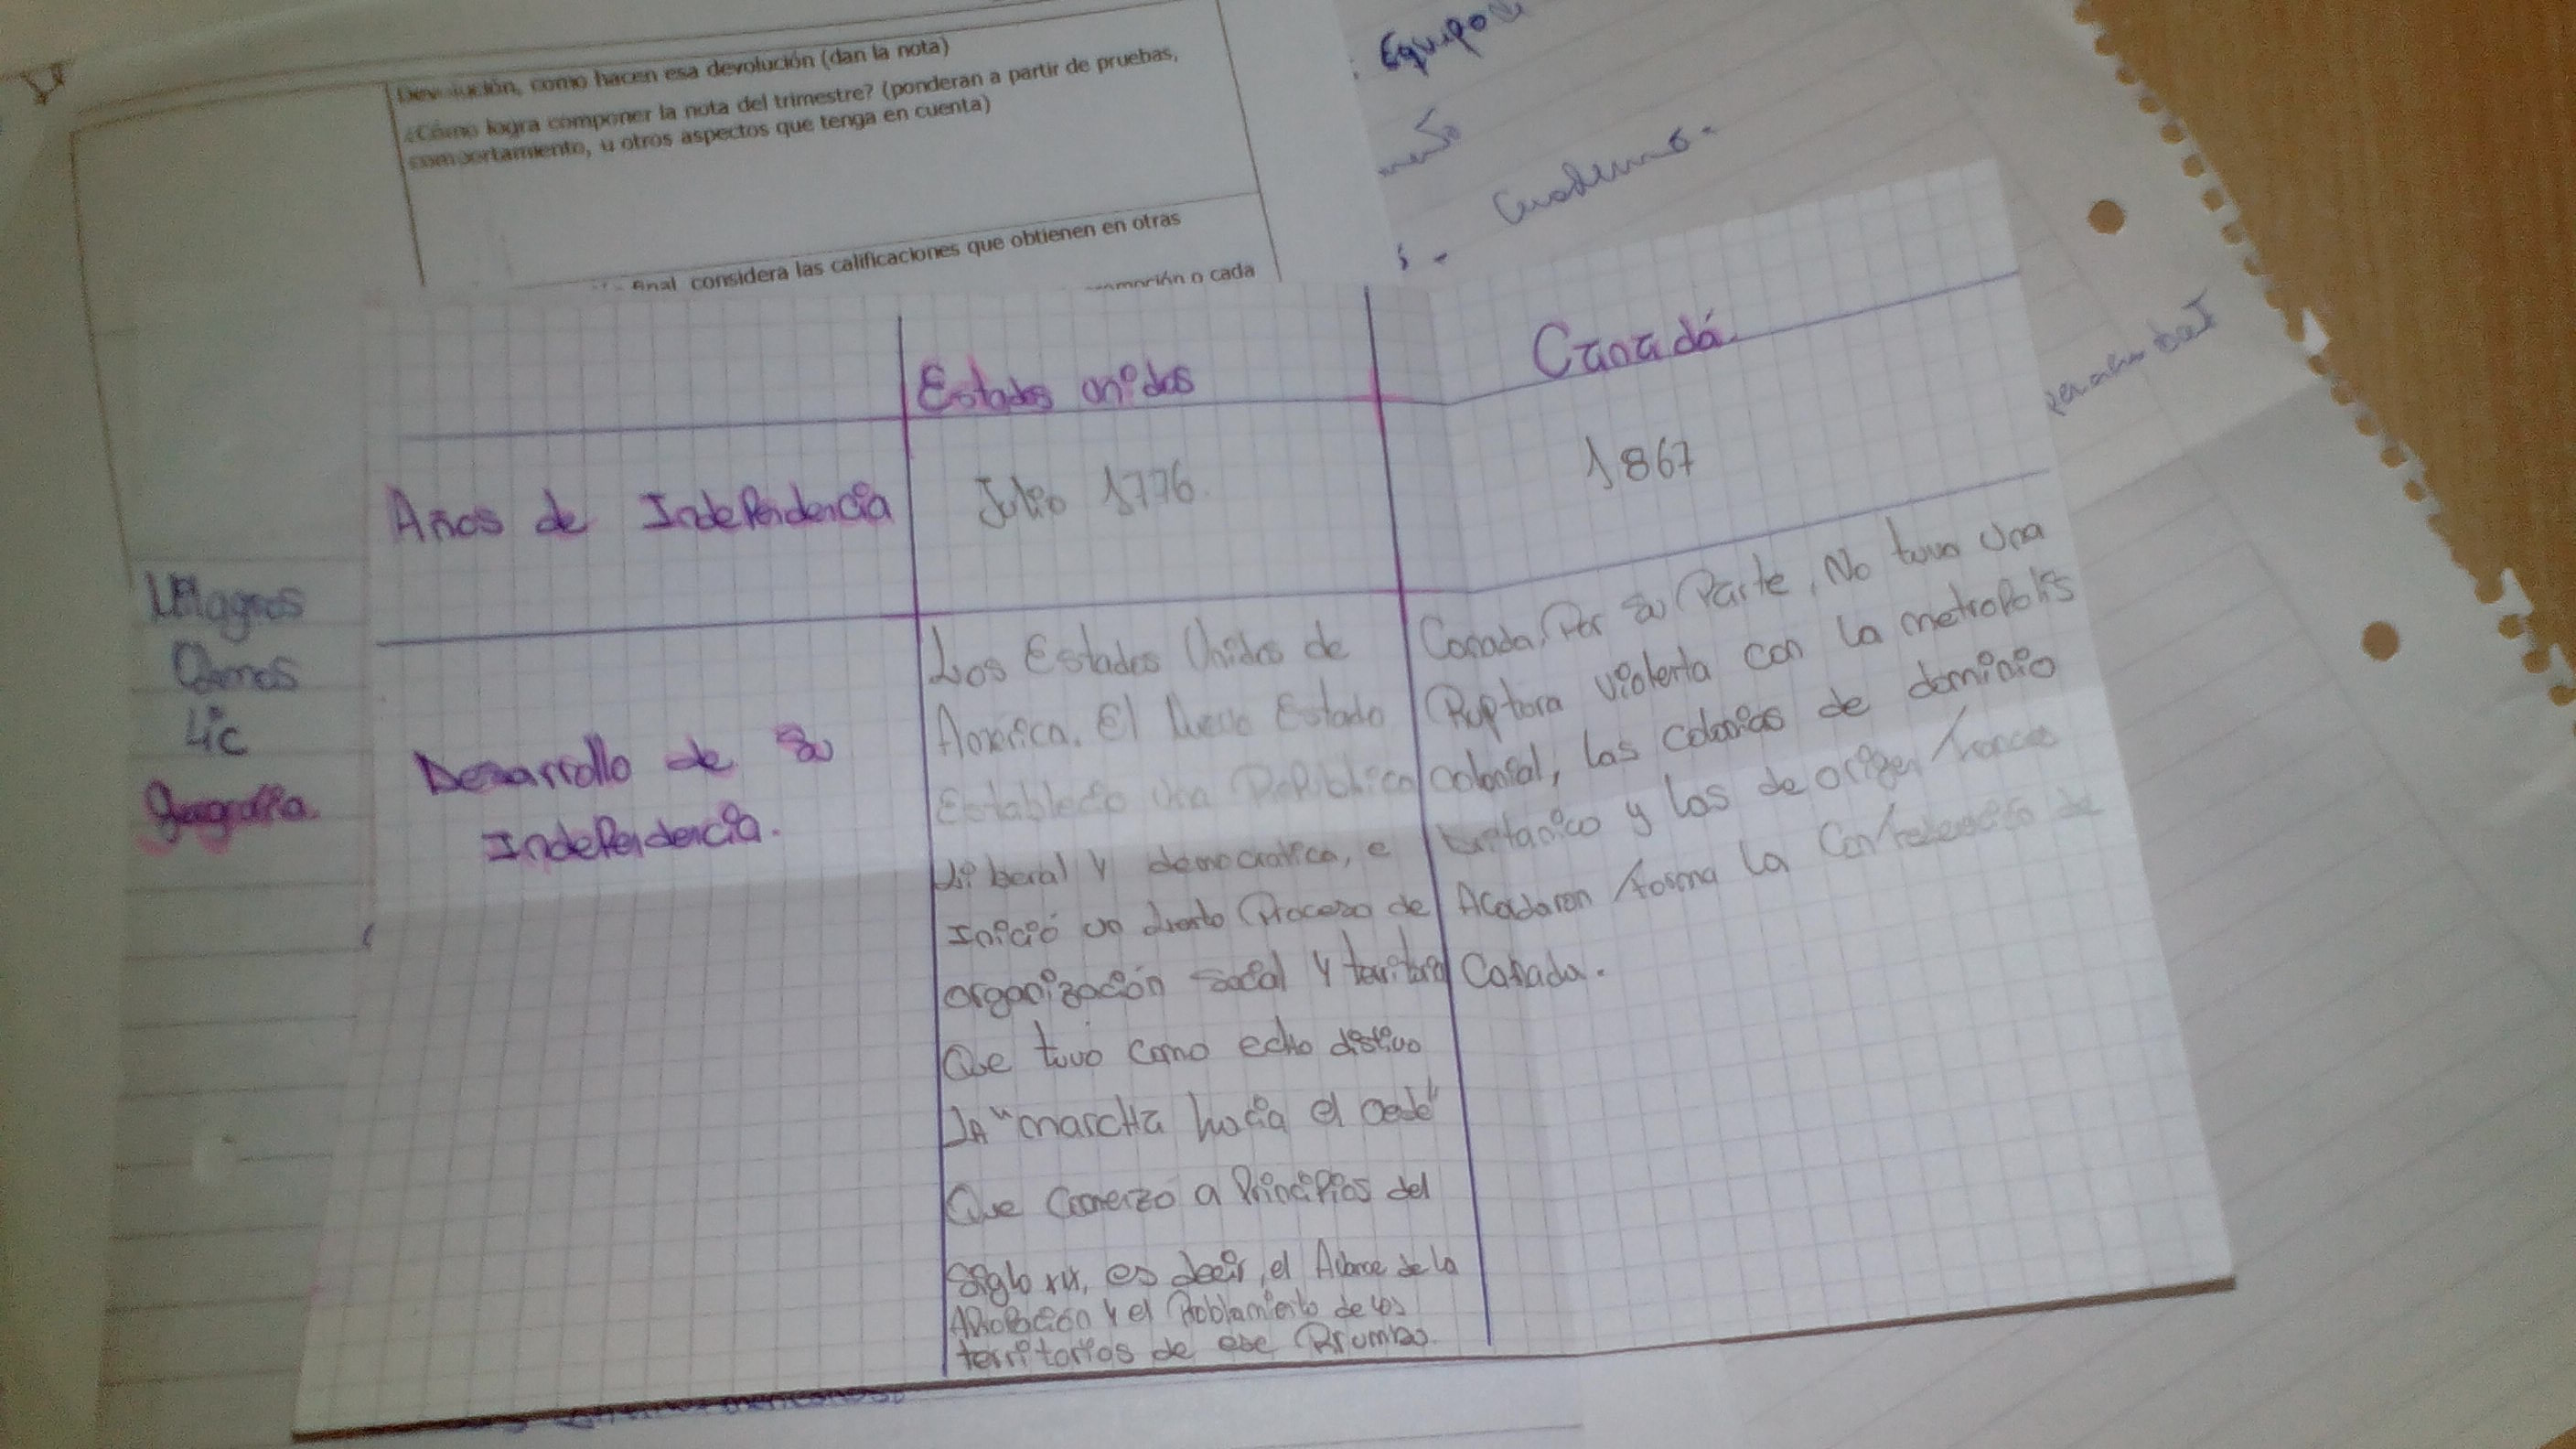 Devolución, como hacen esa devolución (dan la nota)
¿Cómo logra componer la nota del trimestre? (ponderan a partir de pruebas,
comportamiento, u otros aspectos que tenga en cuenta)
final considera las calificaciones que obtienen en otras
o cada
Equipo
Cuaderno.
Estados unidos
Canadá.
Años de Independencia
Julio 1776.
1867
Milagros
4ºc
geografía.
Desarrollo de su
Independencia.
Los Estados Unidos de
America. El Nuevo Estado
Establecio una Republica
Liberal y democratica, e
Inició un Lento Proceso de
organización social y territorial
Que tuvo como echo distivo
LA "marcha hacia el oeste"
Que Comenzo a Principios del
Siglo XIX, es decir, el Abance de la
APropación y el Poblamiento de los
territorios de ese Rrumbo.
Canada, Por su Parte, No tuvo una
Ruptura violenta con la metropolis
colonial, las colonias de dominio
britanico y las de origen frances
Acordaron forma la Confederación de
Canada.